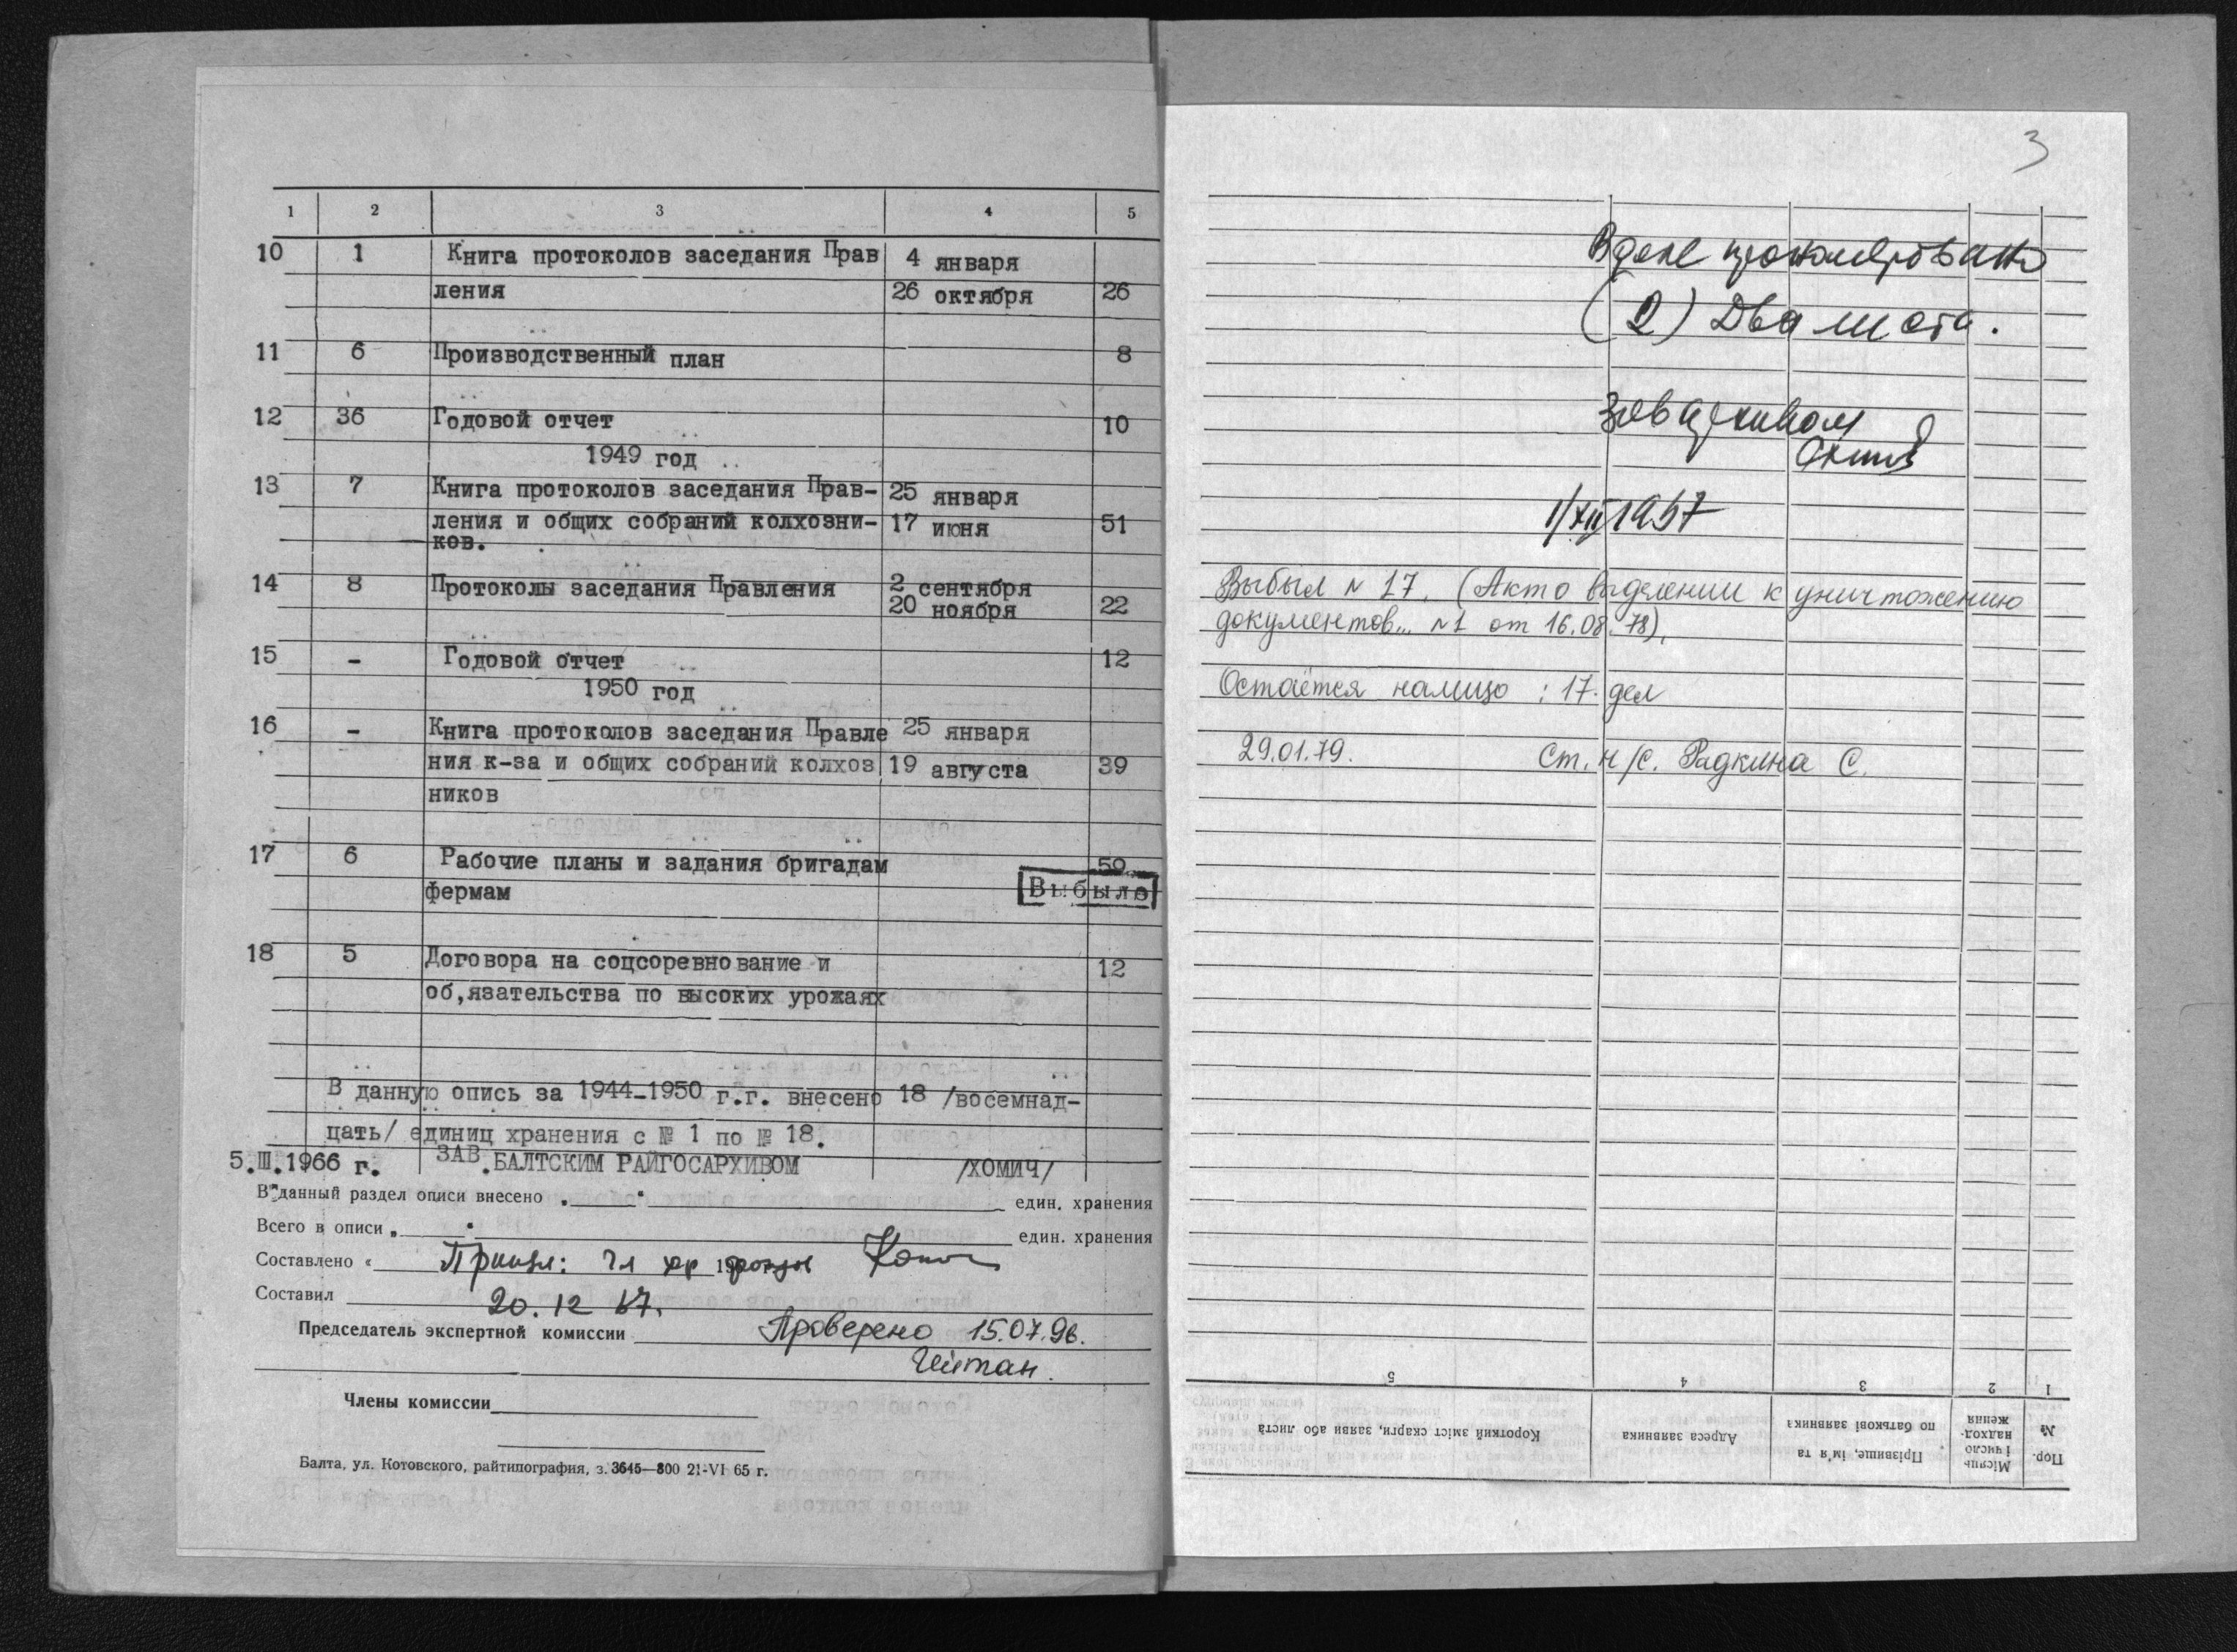 1 2 3 4 5
10 1 Книга протоколов заседания Прав 4 января
ления 26 октября 26
11 6 Производственный план 8
12 36 Годовой отчет 10
1949 год
13 7 Книга протоколов заседания Прав- 25 января
ления и общих собраний колхозни- 17 июня 51
ков.
14 8 Протоколы заседания Правления 2 сентября
20 ноября 22
15 - Годовой отчет 12
1950 год
16 - Книга протоколов заседания Правле 25 января
ния к-за и общих собраний колхоз 19 августа 39
ников
17 6 Рабочие планы и задания бригадам 50
фермам Выбыло
18 5 Договора на соцсоревнование и 12
об,язательства по высоких урожаях
В данную опись за 1944-1950 г.г. внесено 18 /восемнад-
цать/ единиц хранения с № 1 по № 18.
5.III.1966 г. ЗАВ.БАЛТСКИМ РАЙГОСАРХИВОМ /ХОМИЧ/
В данный раздел описи внесено един. хранения
Всего в описи един. хранения
Составлено «
Составил 20.12 67.
Председатель экспертной комиссии Проверено 15.07.96.
Члены комиссии
Балта, ул. Котовского, райтипография, з. 3645—800 21-VI 65 г.
3
В деле пронумеровано
(2) Два листа.
Зав архивом
1/XII 1967
Выбыл № 17. (Акт о выделении к уничтожению
документов... №1 от 16.08.78).
Остаётся налицо : 17 дел
29.01.79. Ст. н/с. Радкина С.
1 2 3 4 5
Пор. № Місяць і число надход-ження Прізвище, ім'я та по батькові заявника Адреса заявника Короткий зміст скарги, заяви або листа